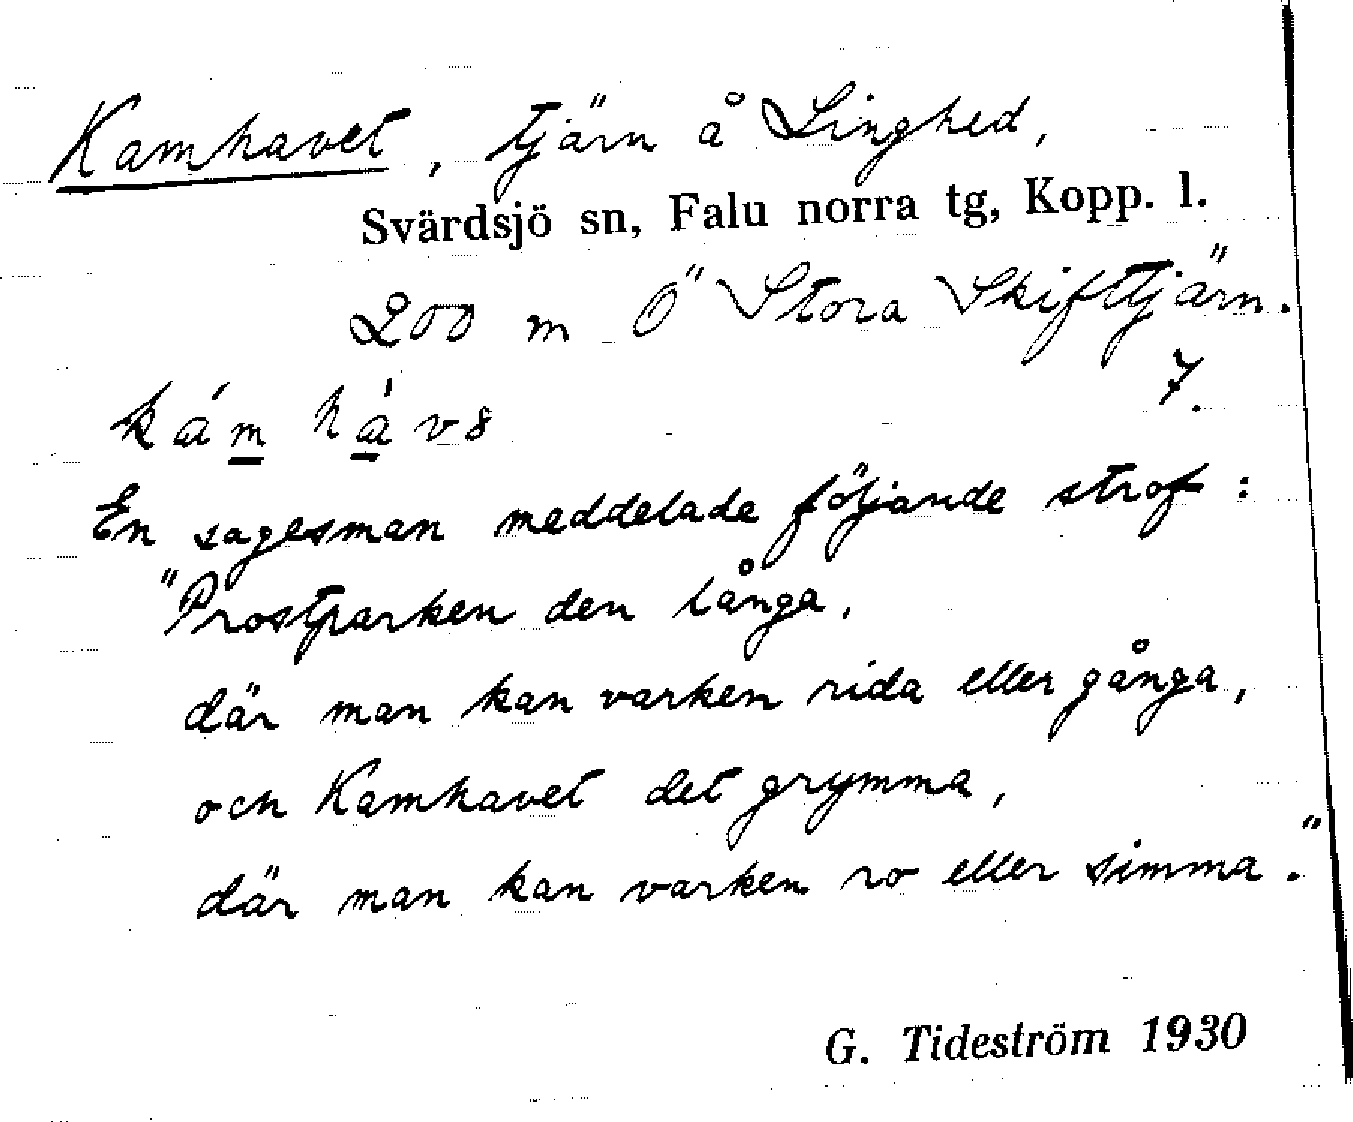 Kamhavet, tjärn å Linghed,
Svärdsjö sn, Falu norra tg, Kopp. l.
200 m Ö Stora Skifttjärn.
7.
En sagesman meddelade följande strof:
"Prostparken den långa,
där man kan varken rida eller gånga,
och Kamhavet det grymma,
där man kan varken ro eller simma."
G. Tideström 1930